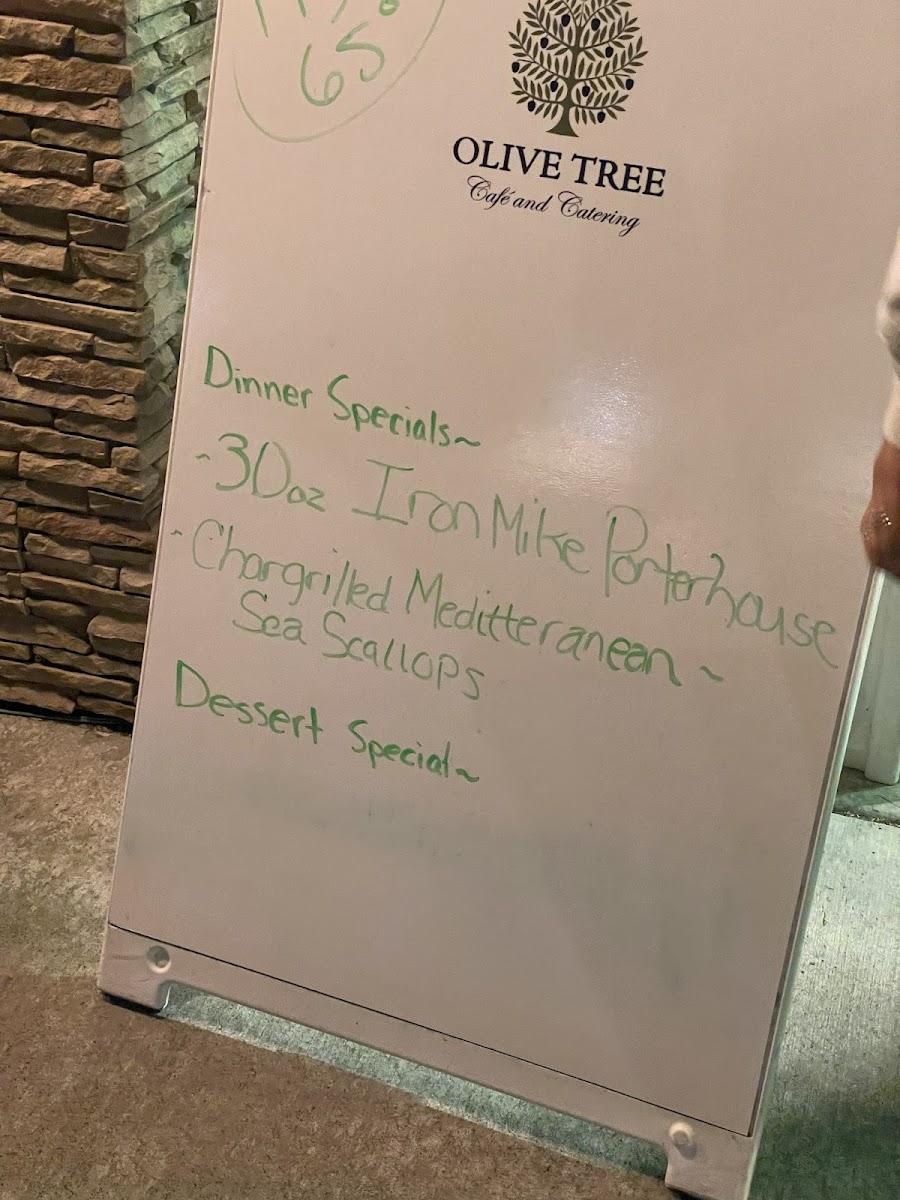 65
OLIVE TREE
Café and Catering
Dinner Specials~
- 30oz Iron Mike Porterhouse
- Chargrilled Meditteranean ~
Sea Scallops
Dessert Special~